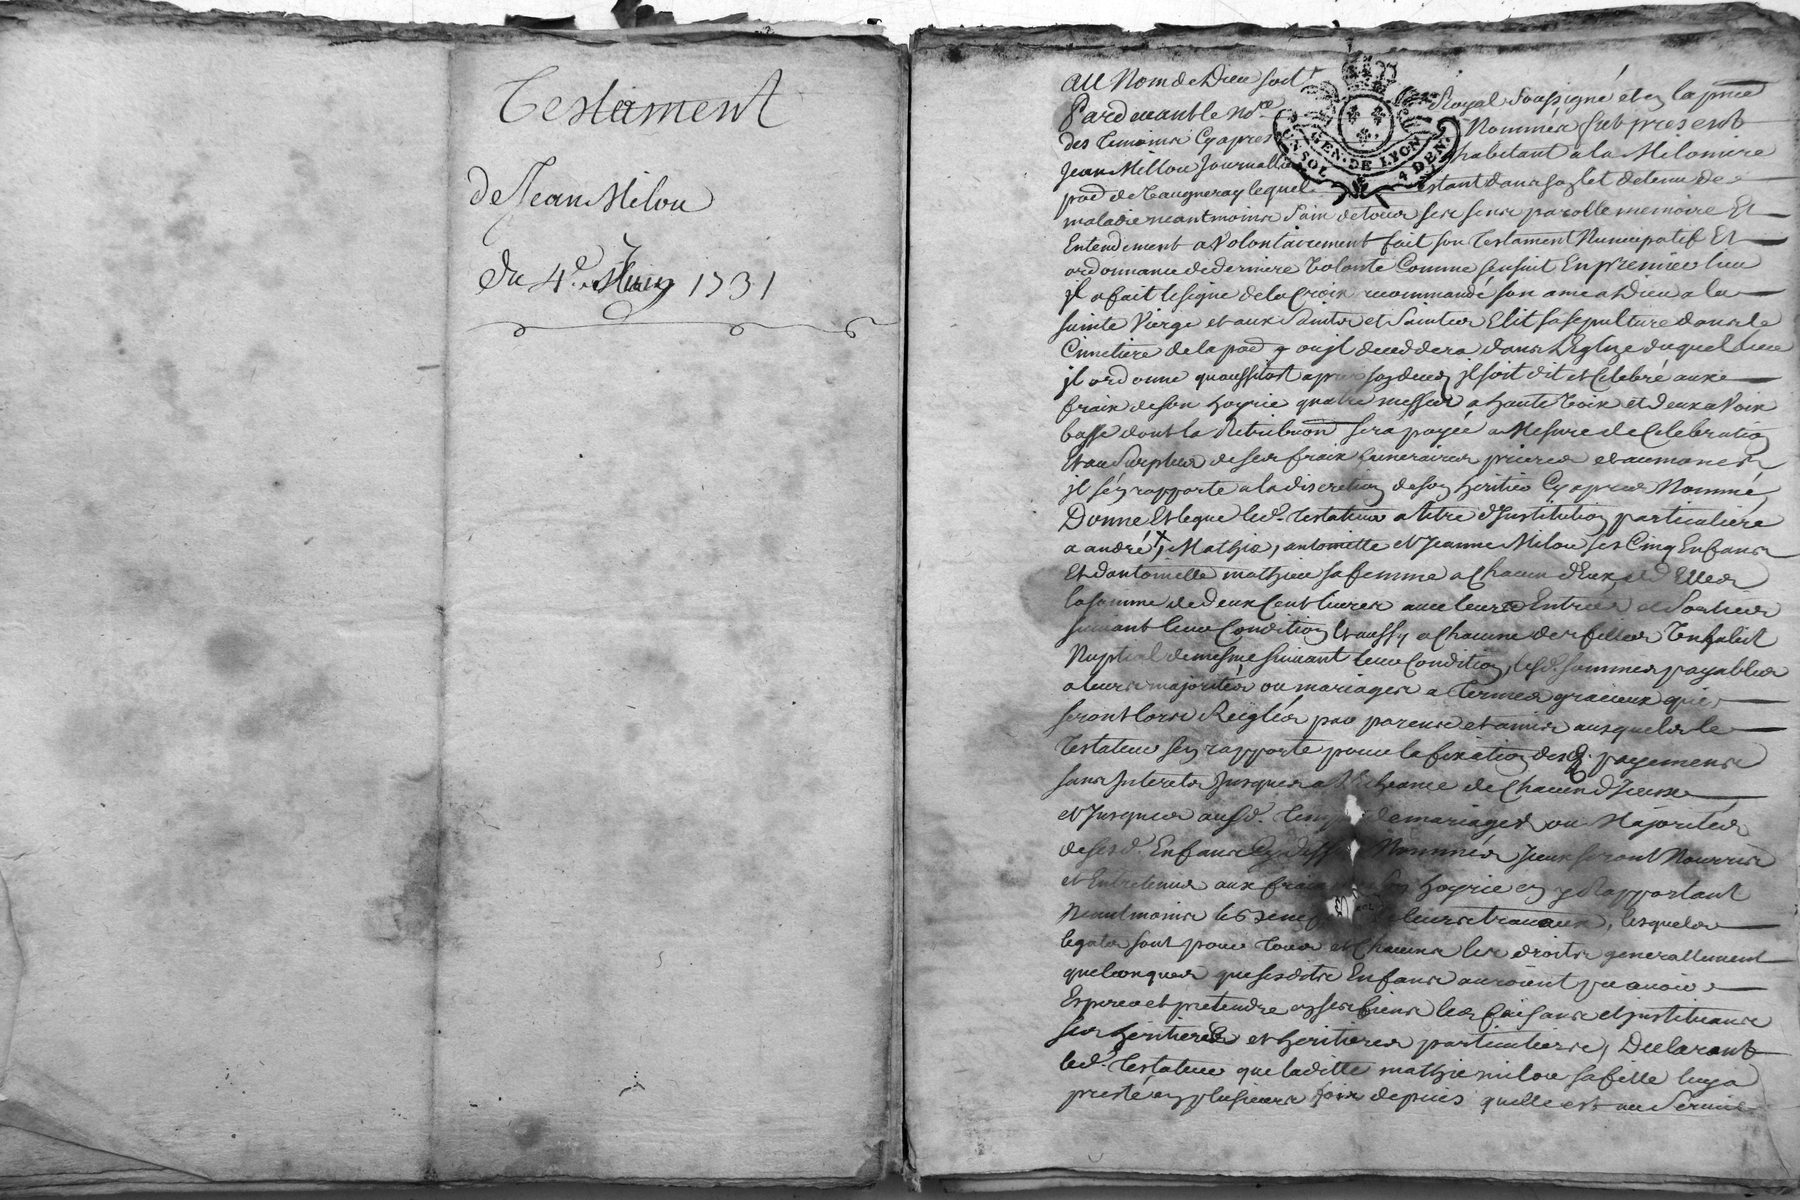 Testament
de Jean Milou
du 4e. 1731
au Nom de Dieu soit
Pardevant le Nore Royal Soussigné et en la pnce
des Temoins Cyapres Nommés fut present
Jean Millou Journallier habitant a la Miloniere
pad de Vaugneray lequel Estant dans son let detenu de
maladie neantmoins Sain de tous ses sens parolle memoire Et
Entendement a Volontairement fait son Testament Nuncupatif Et
ordonnance de derniere Volonté Comme sensuit En premier lieu
jl a fait le signe de la Croix recommandé son ame a Dieu a la
sainte Vierge et aux Saints et Saintes Elit sa sepulture dans le
Cimetiere de la pad ou jl deceddera dans L'Eglize duquel lieu
jl ordonne quaussitost apres son deces jl soit dit et Celebré aux
fraix de son hoyrie quatre messes a haute Voix et deux a Voix
basse dont la Retribuon sera payée a Mesure de Celebration
Et au Surplus de ses fraix funeraires prieres et aumones
jl sen rapporte a la discretion de son heritier Cyapres Nommé
Donne Et legue led. Testateur a titre d'Institution particuliere
a andré, Mathie, antoinette et Jeanne Milou ses Cinq Enfans
Et dantoinette mathieu sa femme a Chacun d'Eux et d'Elles
la somme de deux Cent livres avec leurs Entrées et Sorties
suivant leur Condition Et aussy a Chacune des filles Un habit
Nuptial de mesme suivant leur Condition, lesd. sommes payables
a leurs majorités ou mariages a Termes gracieux qui
seront lors Reiglés par parens et amis ausquels le
Testateur sen rapporte pour la fixation desd. payemens
sans Interets Jusques a Echeance de Chacun d'Jceux
et Jusques ausd. Temps de mariages ou Majorités
de sesd. Enfans Cy dessus Nommés Jceux seront Nourris
et Entretenus aux fraix de son hoyrie en y Rapportant
Neantmoins le de leurs travaux, lesquels
legats sont pour Tous et Chacuns les droits generallement
quelconques que sesdits Enfans auroient pu avoir
Esperer et pretendre en ses biens les faisans et instituans
ses heritiers et heritieres particulieres, Declarant
led. Testateur que laditte mathie milou sa fille luy a
presté en plusieurs fois depuis quelle est au Service
GEN. DE LYON
UN SOL 4 DEN.